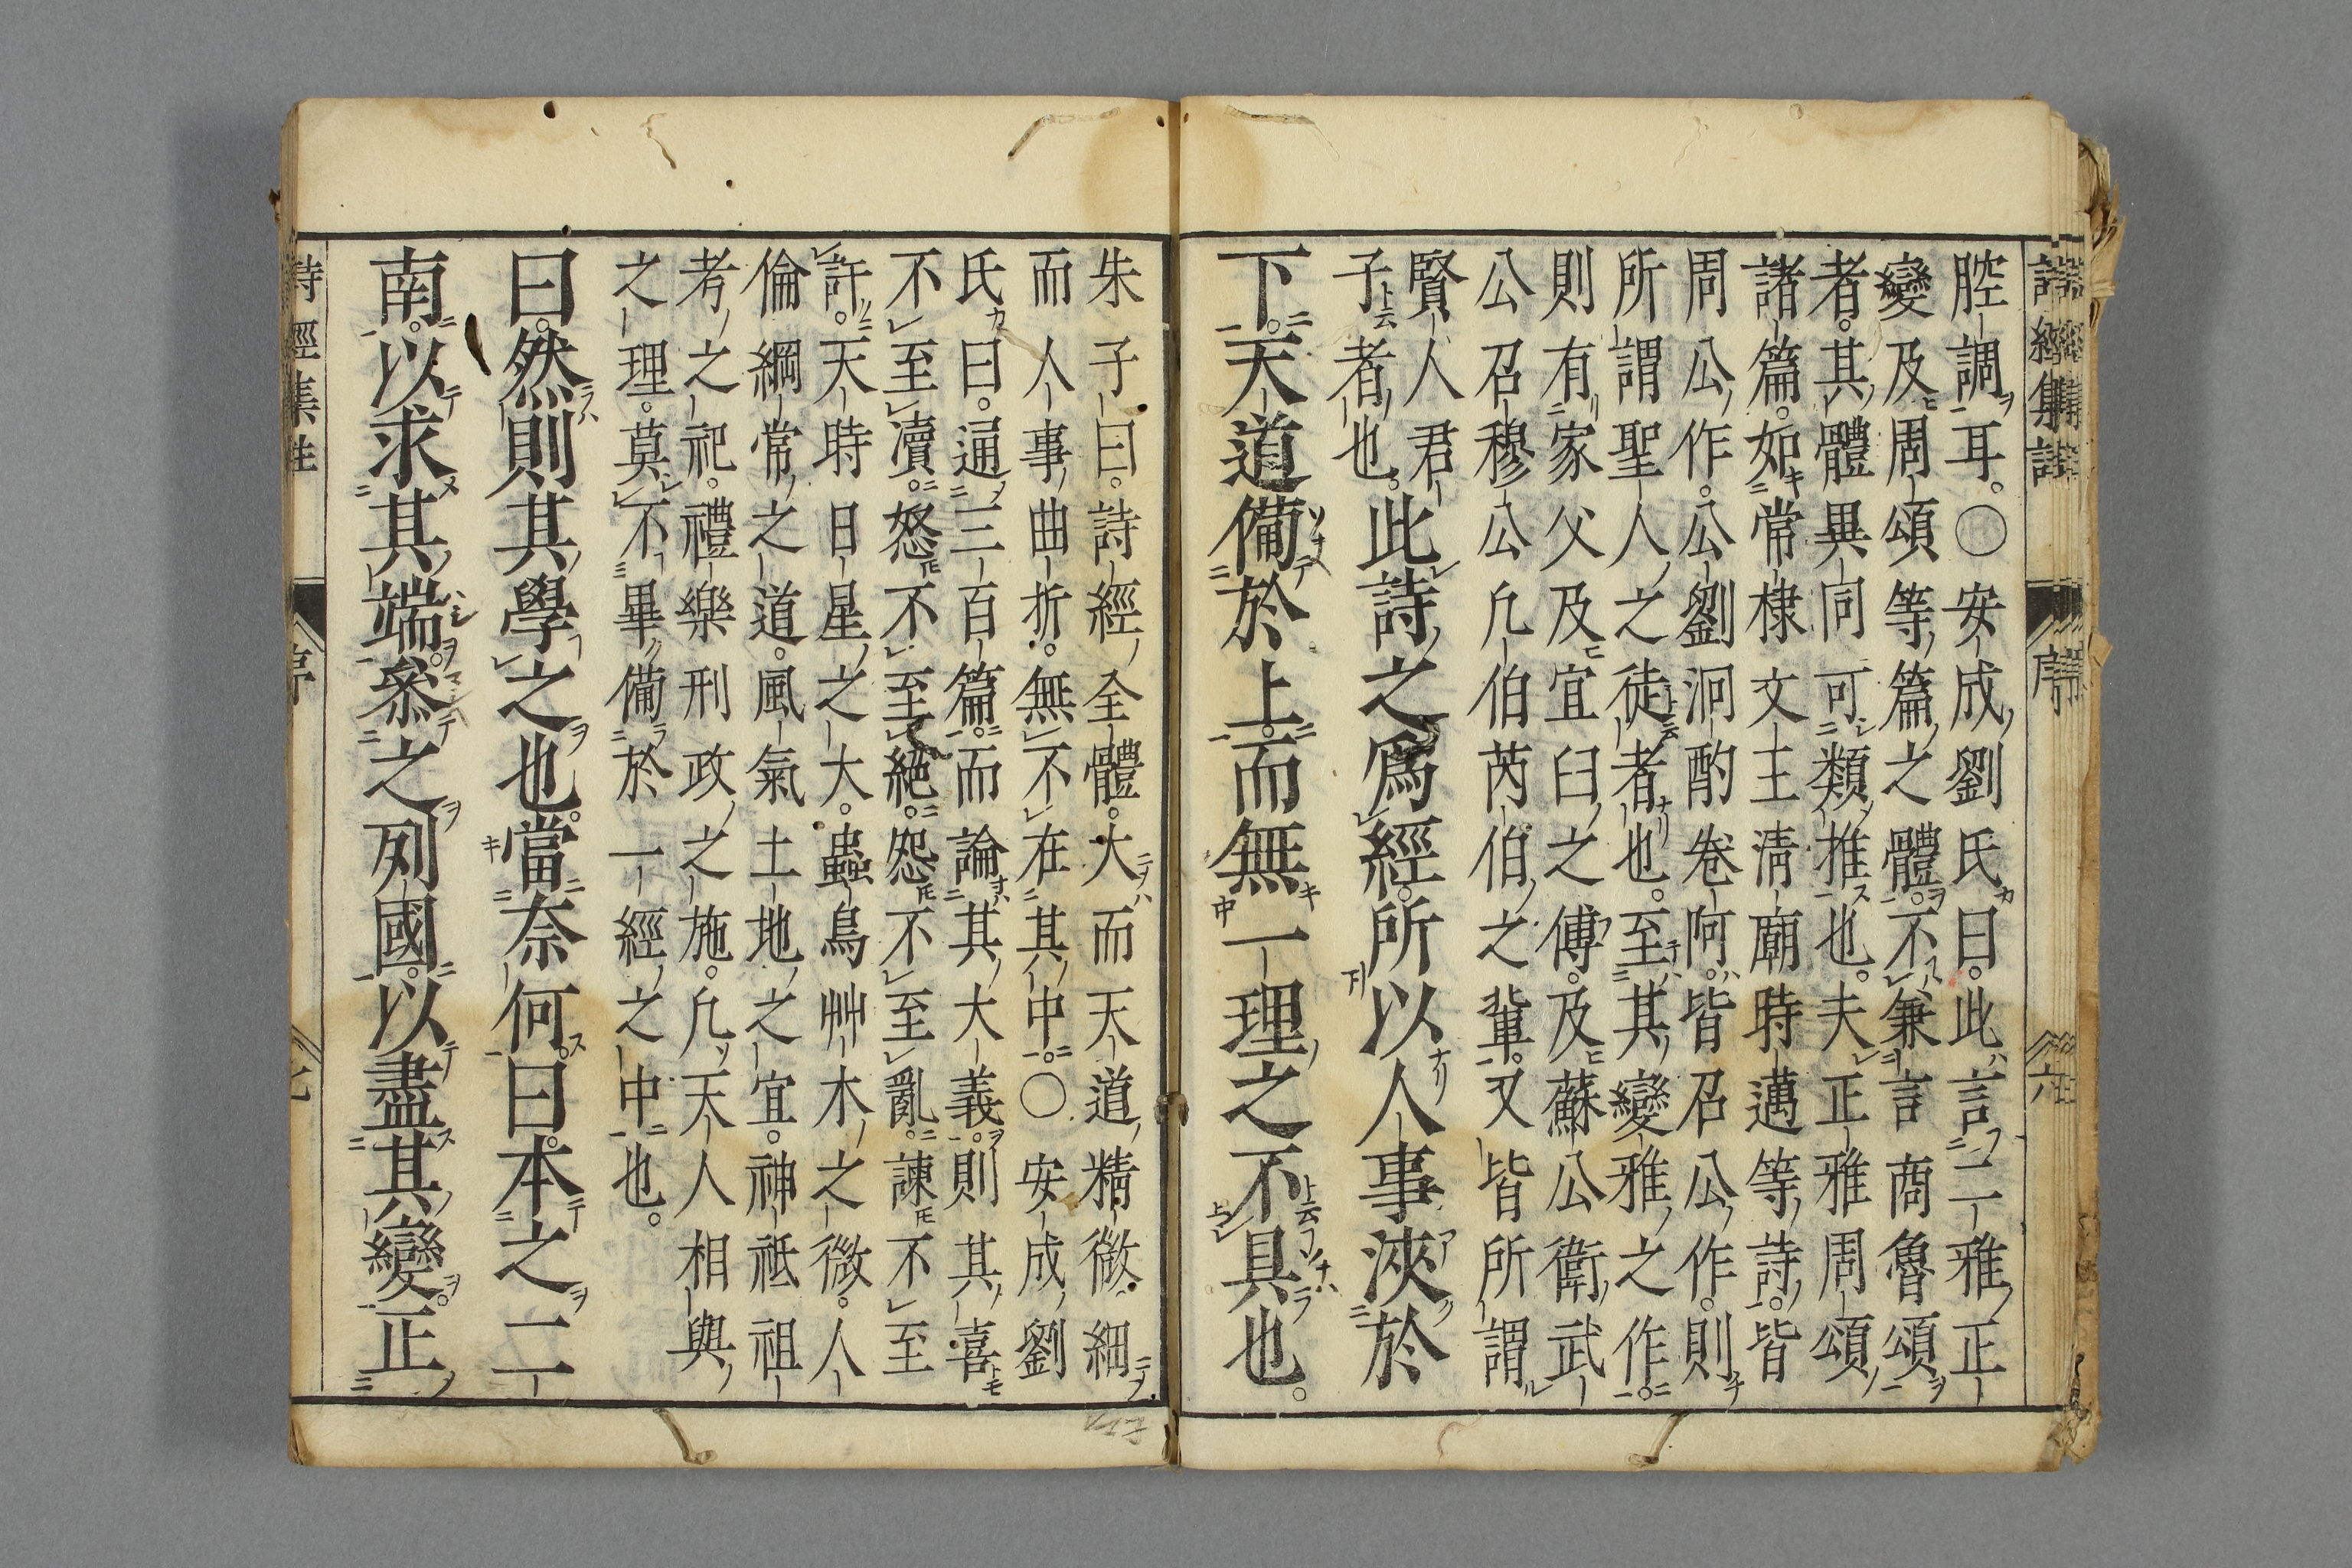 詩經集註
序
六
腔調耳。〇安成劉氏曰。此言二雅正
變及周頌等篇之體。不兼言商魯頌
者。其體異同可類推也。夫正雅周頌
諸篇。如常棣文王淸廟時邁等詩。皆
周公作。公劉泂酌卷阿。皆召公作。則
所謂聖人之徒者也。至其變雅之作。
則有家父及宜臼之傅。及蘇公衞武
公召穆公凡伯芮伯之軰。又皆所謂
賢人君子者也。
此詩之爲經。所以人事浹於
下。天道備於上。而無一理之不具也。
朱子曰。詩經全體。大而天道精微。細
而人事曲折。無不在其中。〇安成劉
氏曰。通三百篇。而論其大義。則其喜
不至瀆。怒不至絕。怨不至亂。諫不至
訐。天時日星之大。蟲鳥艸木之微。人
倫綱常之道。風氣土地之宜。神祇祖
考之祀。禮樂刑政之施。凡天人相與
之理。莫不畢備於一經之中也。
曰。然則其學之也。當奈何。曰。本之二
南。以求其端。叅之列國。以盡其變。正
詩經集註
序
七